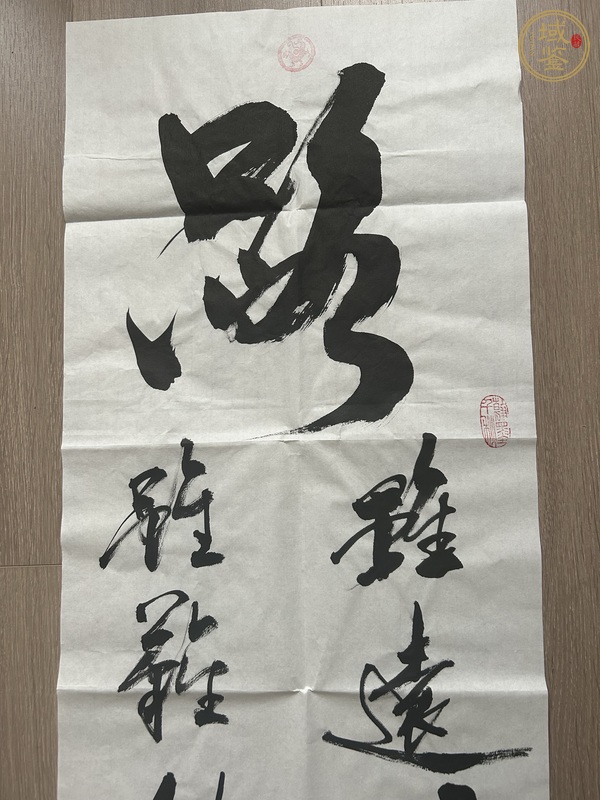 路
雖遠
雖難
域鑒